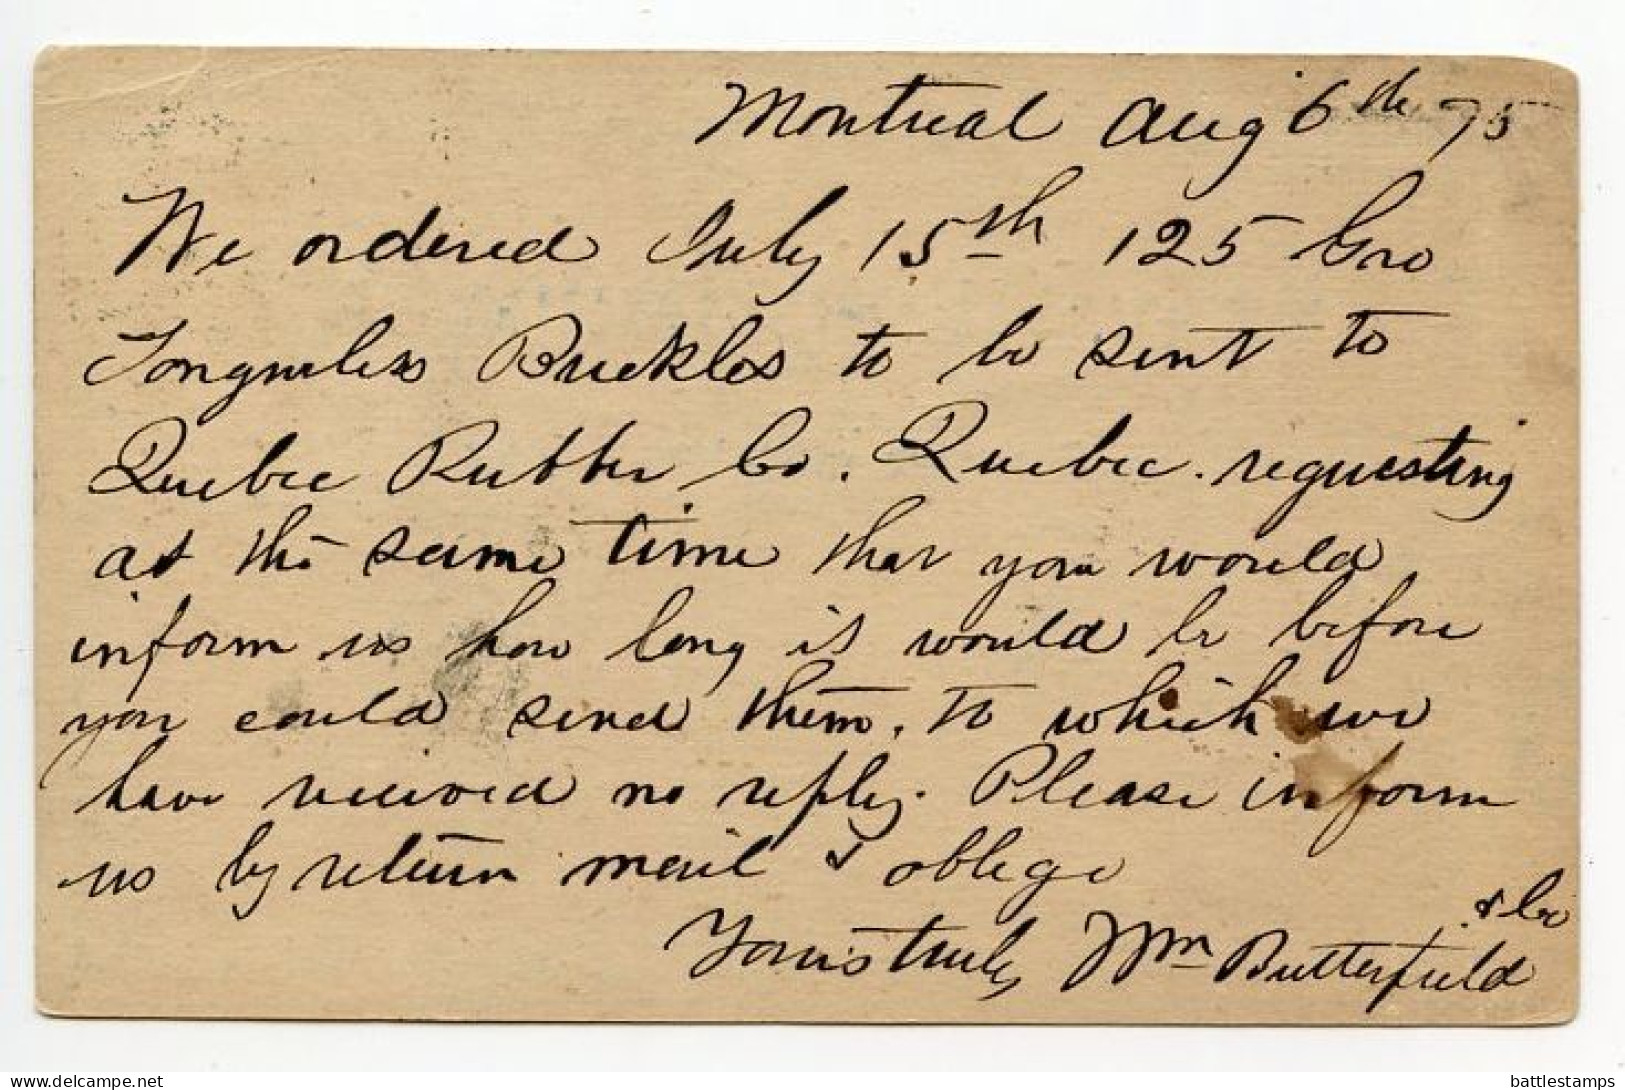 Montreal Aug 6th 75
We ordered July 15th 125 Gro
Tongueless Buckles to be sent to
Quebec Rubber Co. Quebec. requesting
at the same time that you would
inform us how long it would be before
you could send them, to which we
have received no reply. Please inform
us by return mail & oblege
Yours truly Wm Butterfield & Co
www.delcampe.net
battlestamps